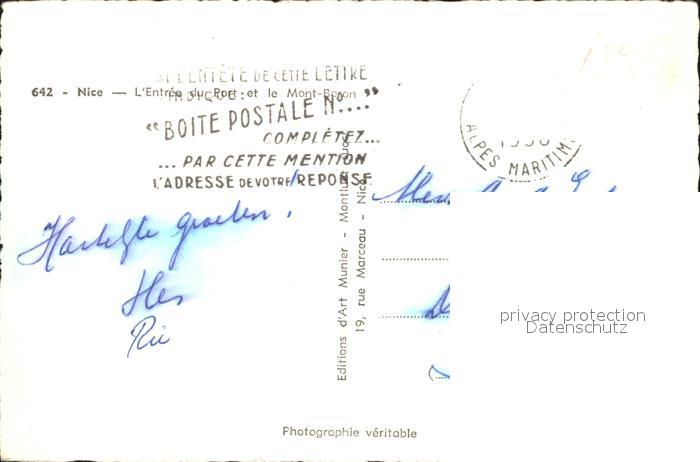 SI L'ENTÊTE DE CETTE LETTRE
642 - Nice — L'Entrée du Port et le Mont-Boron
INDIQUE:
“BOITE POSTALE No....”
COMPLÉTEZ...
...PAR CETTE MENTION
L'ADRESSE DE VOTRE RÉPONSE
ALPES MARITIM
Hartelijke groeten.
Rie
Editions d'Art Munier - Montluçon
19, rue Marceau - Nice
privacy protection
Datenschutz
Photographie véritable